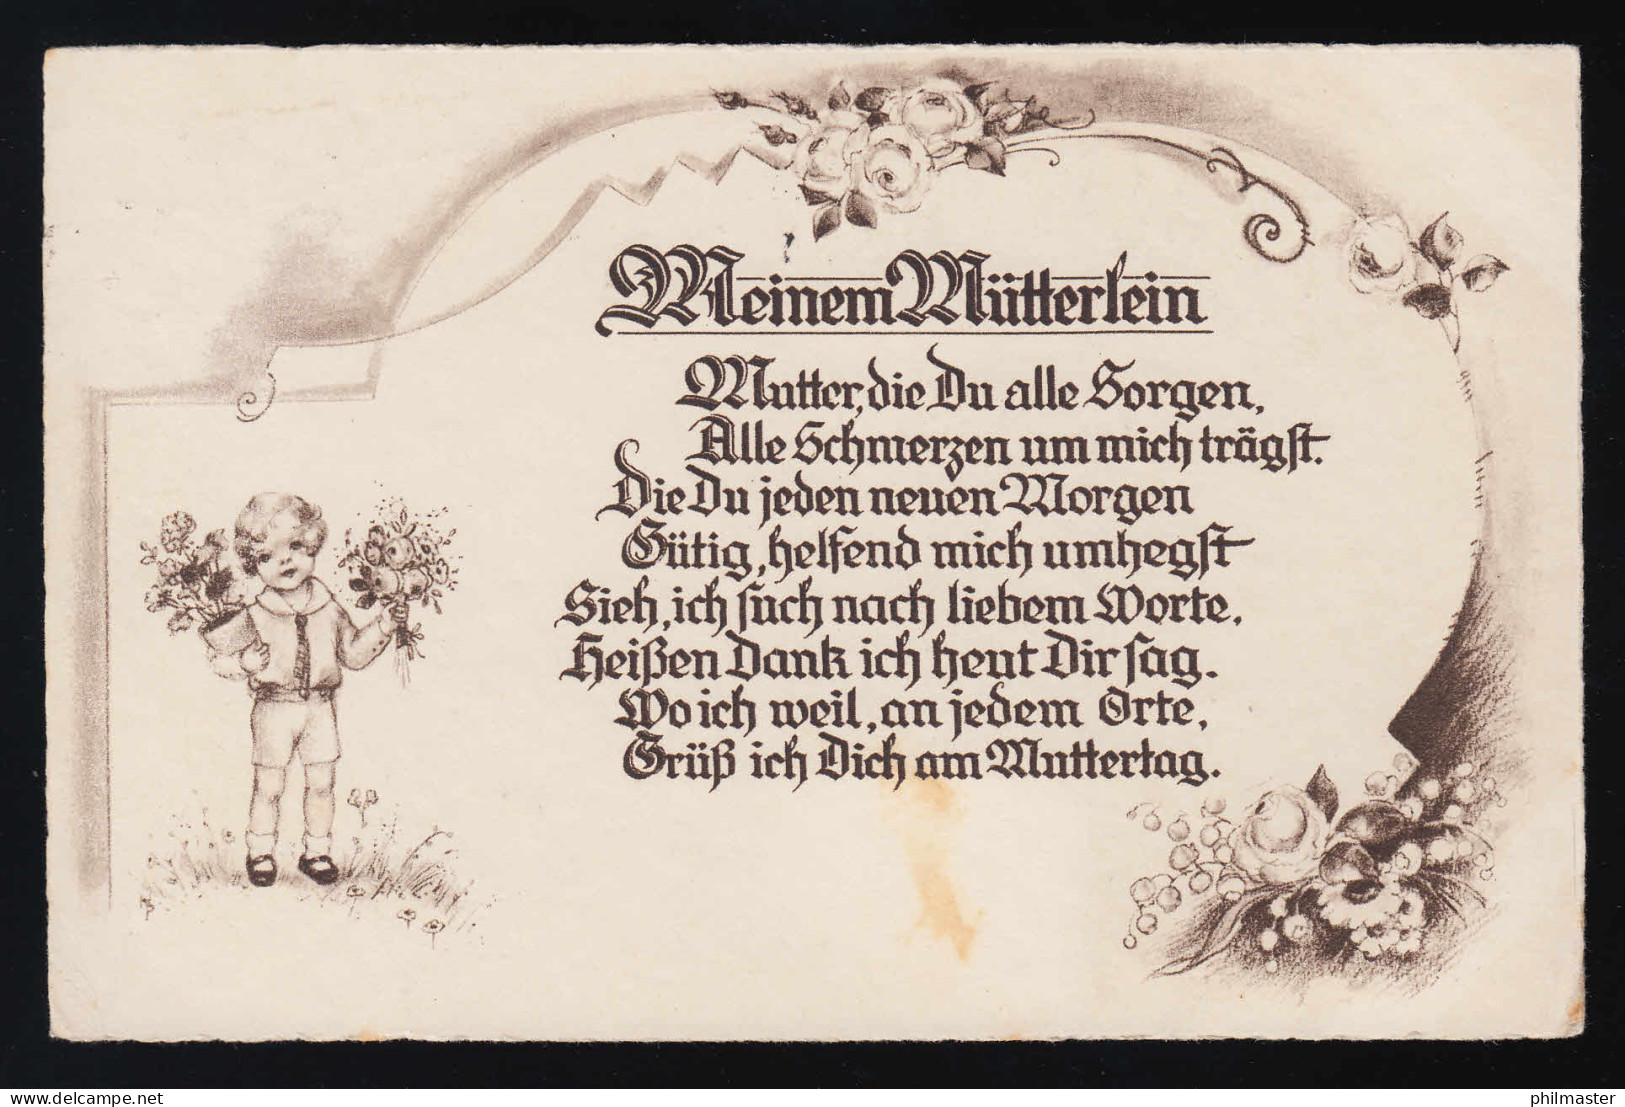 Meinem Mütterlein
Mutter, die Du alle Sorgen,
Alle Schmerzen um mich trägst.
Die Du jeden neuen Morgen
Gütig, helfend mich umhegst
Sieh, ich such nach liebem Worte,
Heißen Dank ich heut Dir sag.
Wo ich weil, an jedem Orte,
Grüß ich Dich am Muttertag.
delcampe.net
philmaster